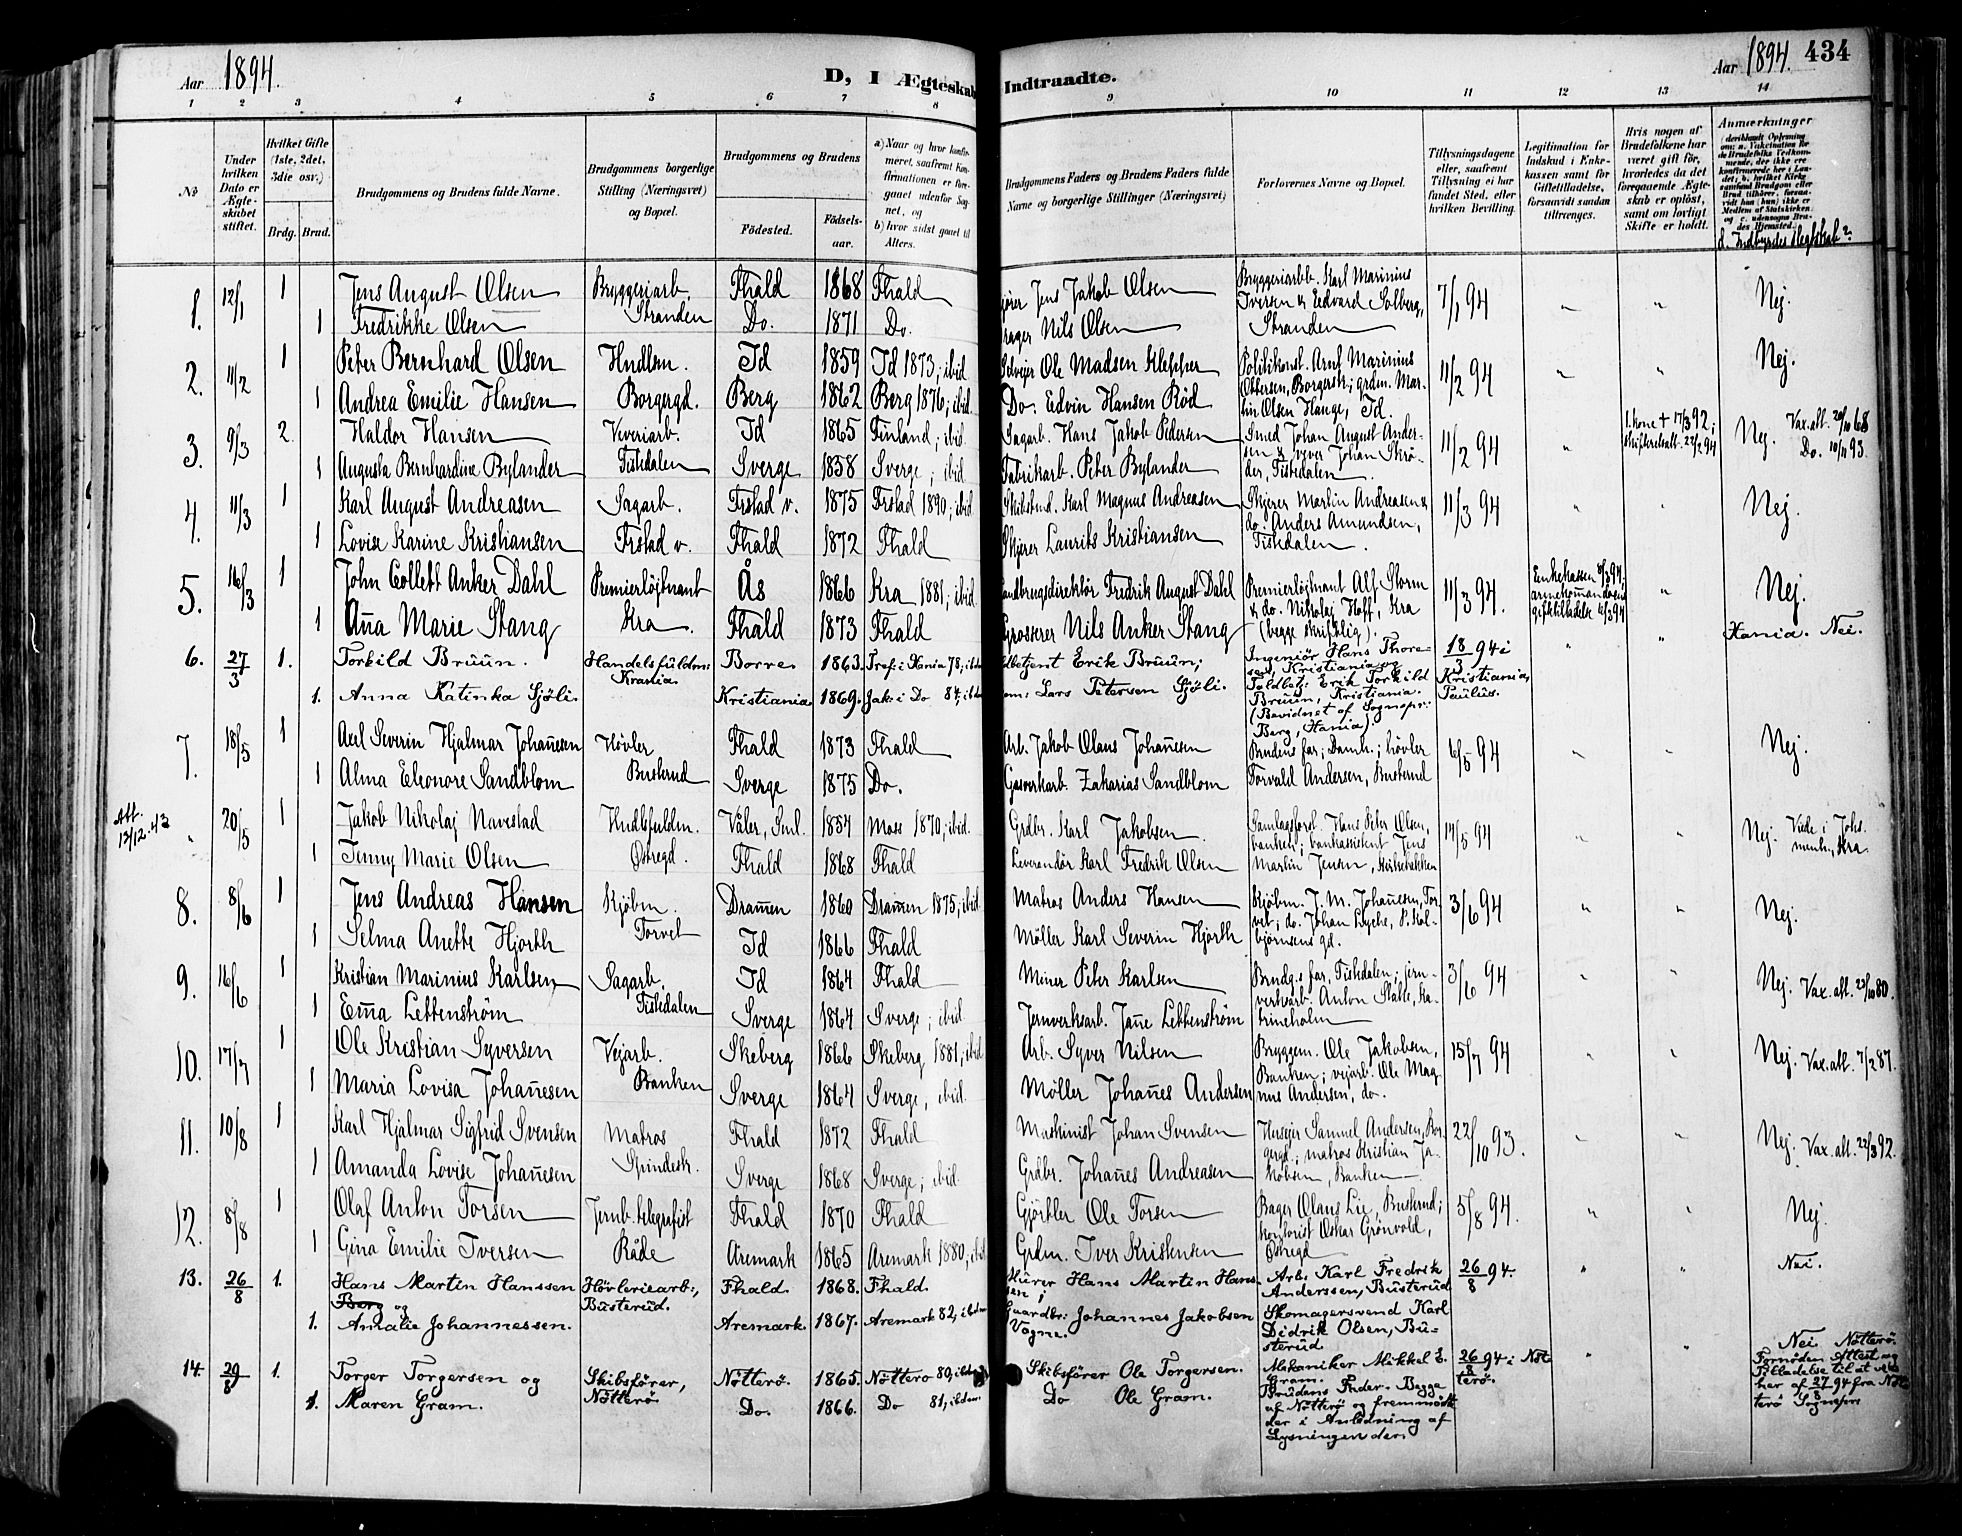 Aar 1894.
D, I Ægteskab
Indtraadte.
Aar 1894. 434
1 2 3 4 5 6 7 8 9 10 11 12 13 14
No
Under hvilken Dato er Ægteskabet stiftet.
Hvilket Gifte (1ste, 2det, 3die osv.)
Brdg. Brud.
Brudgommens og Brudens fulde Navne.
Brudgommens borgerlige Stilling (Næringsvei) og Bopæl.
Brudgommens og Brudens
Fødested. Fødsels-aar.
a) Naar og hvor konfirmeret, saafremt Konfirmationen er foregaaet udenfor Sognet, og
b) hvor sidst gaaet til Alters.
Brudgommens Faders og Brudens Faders fulde Navne og borgerlige Stillinger (Næringsvei)
Forlovernes Navne og Bopæl.
Tillysningsdagene eller, saafremt Tillysning ei har fundet Sted, efter hvilken Bevilling.
Legitimation for Indskud i Enkekassen samt for Giftetilladelse, forsaavidt saadan tiltrænges.
Hvis nogen af Brudefolkene har været gift før, hvorledes da det foregaaende Ægteskab er opløst, samt om lovligt Skifte er holdt.
Anmærkninger
d. Indbyrdes slegtskab?
1. 12/1 1 Jens August Olsen Bryggeriarb. Fhald 1868 Fhald Jens Jakob Olsen Bryggeriarb. Karl Marinius 7/1 94 " " Nej.
1 Fredrikke Olsen Stranden Do. 1871 Do. Nils Olsen Iversen & Edvard Solberg, Stranden
2. 11/2 1 Peter Bernhard Olsen Hndlsm. Id 1859 Id 1873; ibid. Selvejer Ole Madsen Klepper Politikonst. Arnt Marinius 11/2 94 " " Nej.
1 Andrea Emilie Hansen Borgergd. Berg 1862 Berg 1876; ibid. Do: Edvin Hansen Rød Ottersen, Borgerst; grdm. Martin Olsen Hauge, Id.
3. 9/3 2. Haldor Hansen Veveriarb. Id 1865 Finland; ibid. Sagarb. Hans Jakob Pedersen Smed Johan August Ander- 11/2 94 " 1. kone + 17/3 92; skifteretsatt. 22/2 94 Nej. Vax.att. 20/10 68
1 Augusta Bernhardine Bylander Tistedalen Sverge 1858 Sverge; ibid. Fabrikarb. Peter Bylander sen & væver Johan Skrøder, Tistedalen. Do. 10/11 93.
4. 11/3 1 Karl August Andreasen Sagarb. Frstad v. 1875 Frstad 1890; ibid. Skibstmd. Karl Magnus Andreasen Skjerer Martin Andreasen & 11/3 94 " " Nej.
1 Lovise Karine Kristiansen Frstad v. Fhald 1872 Fhald Skjerer Laurits Kristiansen do. Anders Amundsen, Tistedalen.
5. 16/3 1 John Collett Anker Dahl Premierløjtnant Ås 1866 Kra 1881; ibid. Landbrugsdirektør Fredrik August Dahl Premierløjtnant Alf Storm 11/3 94. Enkekassen 8/3 94, armekommandoens giftetilladelse 6/3 94 " Nej.
1 Anna Marie Stang Kra. Fhald 1873 Fhald Grosserer Nils Anker Stang & do. Nikolaj Hoff, Kra (begge skriftlig).
6. 27/3 1. Torkild Bruun. Handelsfuldm: Borre. 1863. Tref: i Xania 78; ibdm Toldbetjent Erik Bruun; Ingeniør Hans Thoresen, Kristiania og 18/3 94 i Kristiania, Paulus. " " Xania. Nei.
1. Anna Katinka Sjøli. Krania Kristiania 1869. Jak: i Do 84; ibdm Lars Petersen Sjøli. Toldbet: Erik Torkild Bruun, Kristiania. (Bevidnet af Sognepr: Berg, Xania).
7. 18/5 1 Axel Severin Hjalmar Johannesen Høvler Fhald 1873 Fhald Arb. Jakob Olaus Johannesen Brudens far; Damh.; høvler 6/5 94 " " Nej.
1 Alma Eleonore Sandblom Busterud Sverge 1875 Do. Gasverkarb. Zakarias Sandblom Torvald Andersen, Busterud
Att. 13/12.43
" 20/5 1 Jakob Nikolaj Navestad Hndlsfuldm. Våler, Sml. 1854 Moss 1870; ibid. Grdbr. Karl Jakobsen Samlagsforst. Hans Peter Olsen, 14/5 94 " " Nej. Viede i Johs. menh., Kra.
1 Jenny Marie Olsen Østregd. Fhald 1868 Fhald Leverandør Karl Fredrik Olsen banken; bankassistent Jens Martin Jensen,
8. 8/6 1 Jens Andreas Hansen Kjøbm. Drammen 1860 Drammen 1875; ibid. Matros Anders Hansen Kjøbm. J. M. Johannesen, Tor- 3/6 94 " " Nej.
1 Selma Anette Hjorth Torvet Id 1866 Fhald Møller Karl Severin Hjorth vet; do. Johan Lyche, P. Kolbjørnsens gd.
9. 16/6 1 Kristian Marinius Karlsen Sagarb. Id 1864 Fhald Miner Peter Karlsen Brudg.s far, Tistedalen; jern- 3/6 94 " " Nej. Vax.att. 23/10 80.
1 Emma Lettenstrøm Tistedalen Sverge 1864 Sverge; ibid. Jernverksarb. Janne Lettenstrøm verksarb. Anton Stabte, Katrineholm
10. 17/7 1 Ole Kristian Syversen Vejarb. Skeberg 1866 Skeberg, 1881; ibid Arb. Syver Nilsen Bryggem. Ole Jakobsen, 15/7 94 " " Nej. Vax.att. 7/2 87.
1 Maria Lovisa Johannesen Banken Sverge 1864 Sverge, ibid. Møller Johannes Andersen Banken; vejarb. Ole Magnus Andersen, do.
11. 10/8 1 Karl Hjalmar Sigfrid Svensen Matros Fhald 1872 Fhald Maskinist Johan Svensen Husejer Samuel Andersen, Bor- 22/10 93. " " Nej. Vax.att. 22/3 92.
1 Amanda Lovise Johannesen Spindesk. Sverge 1868 Sverge; ibid. Grdbr. Johannes Andreasen gergd.; matros Kristian Jakobsen, Banken
12. 8/8 1 Olaf Anton Torsen Jernb.telegrafist Fhald 1870 Fhald Gjørtler Ole Torsen Bager Olaus Lie, Busterud; 5/8 94. " " Nej.
1 Gina Emilie Iversen Råde Aremark 1865 Aremark 1880; ibid Grdm. Iver Kristensen kontorist Oskar Grønvold, Østregd
13. 26/8 1. Hans Martin Hanssen Berg og Høvlerïarb:, Busterud. Fhald. 1868. Fhald. Hans Martin Hanssen; Arb: Karl Fredrik Anderssen, Busterud 26/8 94. " " Nei.
1. Amalie Johannessen. Aremark. 1867. Aremark 82, ibidm Gaardbr: Johannes Jakobsen Vogne. Skomagersvend Karl Didrik Olsen, Busterud
14. 29/8 1. Torger Torgersen og Skibsfører, Nøtterø Nøtterø. 1865. Nøtterø 80, ibidm Skibsfører Ole Torgersen. Mekaniker Mikkel E. Gram. 26/8 94 i Nøtterø. " " Nei Nøtterø.
1. Maren Gram. Do. 1866. Do 81, ibdm. Do Ole Gram. Brudens Fader. Begge af Nøtterø og fremmødte der i Anledning af Lysningen der. Fornøden Attest og Tilladelse til at vies her af 27/8 94 fra Nøtterø Sognepr